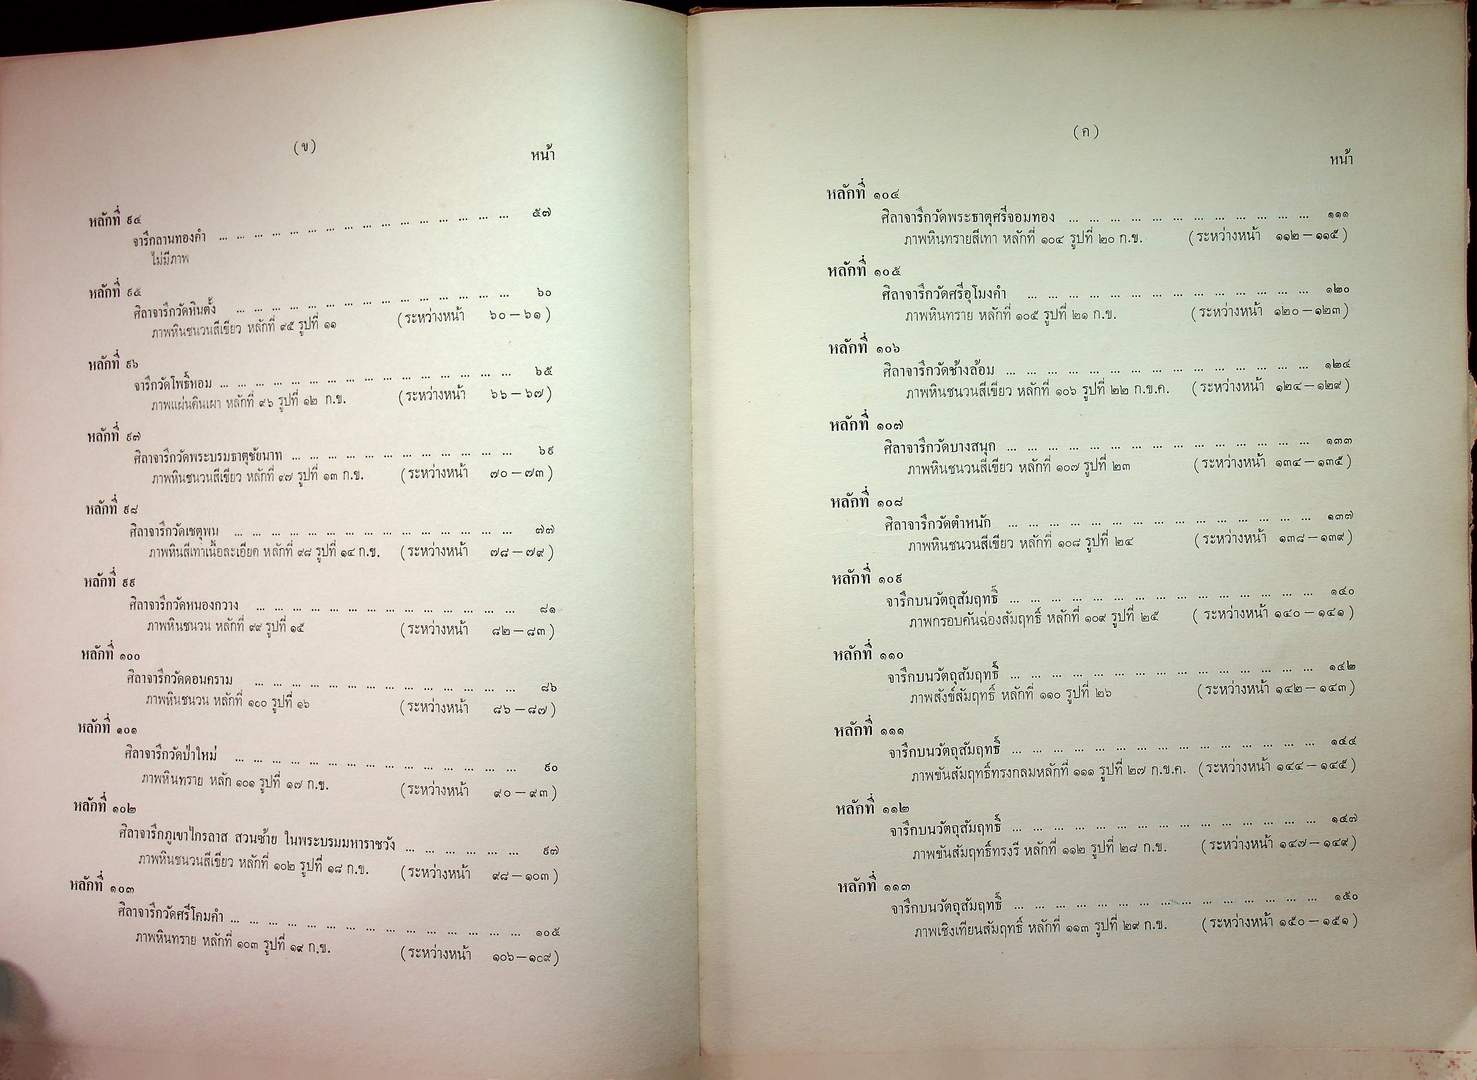 (ข)
หน้า
หลักที่ ๙๔
จารึกลานทองคำ ... ... ... ... ... ... ... ... ... ... ... ... ... ... ... ... ... ๕๗
ไม่มีภาพ
หลักที่ ๙๕
ศิลาจารึกวัดหินตั้ง ... ... ... ... ... ... ... ... ... ... ... ... ... ... ... ... ๖๐
ภาพหินชนวนสีเขียว หลักที่ ๙๕ รูปที่ ๑๑ (ระหว่างหน้า ๖๐–๖๑)
หลักที่ ๙๖
จารึกวัดโพธิ์หอม ... ... ... ... ... ... ... ... ... ... ... ... ... ... ... ... ... ๖๕
ภาพแผ่นดินเผา หลักที่ ๙๖ รูปที่ ๑๒ ก.ข. (ระหว่างหน้า ๖๖–๖๗)
หลักที่ ๙๗
ศิลาจารึกวัดพระบรมธาตุชัยนาท ... ... ... ... ... ... ... ... ... ... ... ... ... ๖๙
ภาพหินชนวนสีเขียว หลักที่ ๙๗ รูปที่ ๑๓ ก.ข. (ระหว่างหน้า ๗๐–๗๓)
หลักที่ ๙๘
ศิลาจารึกวัดเชตุพน ... ... ... ... ... ... ... ... ... ... ... ... ... ... ... ... ๗๗
ภาพหินสีเทาเนื้อละเอียด หลักที่ ๙๘ รูปที่ ๑๔ ก.ข. (ระหว่างหน้า ๗๘–๗๙)
หลักที่ ๙๙
ศิลาจารึกวัดหนองกวาง ... ... ... ... ... ... ... ... ... ... ... ... ... ... ... ๘๑
ภาพหินชนวน หลักที่ ๙๙ รูปที่ ๑๕ (ระหว่างหน้า ๘๒–๘๓)
หลักที่ ๑๐๐
ศิลาจารึกวัดดอนคราม ... ... ... ... ... ... ... ... ... ... ... ... ... ... ... ๘๖
ภาพหินชนวน หลักที่ ๑๐๐ รูปที่ ๑๖ (ระหว่างหน้า ๘๖–๘๗)
หลักที่ ๑๐๑
ศิลาจารึกวัดป่าใหม่ ... ... ... ... ... ... ... ... ... ... ... ... ... ... ... ... ๙๐
ภาพหินทราย หลัก ๑๐๑ รูปที่ ๑๗ ก.ข. (ระหว่างหน้า ๙๐–๙๓)
หลักที่ ๑๐๒
ศิลาจารึกภูเขาไกรลาส สวนซ้าย ในพระบรมมหาราชวัง ... ... ... ... ... ... ... ๙๗
ภาพหินชนวนสีเขียว หลักที่ ๑๐๒ รูปที่ ๑๘ ก.ข. (ระหว่างหน้า ๙๘–๑๐๓)
หลักที่ ๑๐๓
ศิลาจารึกวัดศรีโคมคำ ... ... ... ... ... ... ... ... ... ... ... ... ... ... ... ... ๑๐๕
ภาพหินทราย หลักที่ ๑๐๓ รูปที่ ๑๙ ก.ข. (ระหว่างหน้า ๑๐๖–๑๐๙)
(ค)
หน้า
หลักที่ ๑๐๔
ศิลาจารึกวัดพระธาตุศรีจอมทอง ... ... ... ... ... ... ... ... ... ... ... ... ๑๑๑
ภาพหินทรายสีเทา หลักที่ ๑๐๔ รูปที่ ๒๐ ก.ข. (ระหว่างหน้า ๑๑๒–๑๑๕)
หลักที่ ๑๐๕
ศิลาจารึกวัดศรีอุโมงคำ ... ... ... ... ... ... ... ... ... ... ... ... ... ... ๑๒๐
ภาพหินทราย หลักที่ ๑๐๕ รูปที่ ๒๑ ก.ข. (ระหว่างหน้า ๑๒๐–๑๒๓)
หลักที่ ๑๐๖
ศิลาจารึกวัดช้างล้อม ... ... ... ... ... ... ... ... ... ... ... ... ... ... ... ๑๒๔
ภาพหินชนวนสีเขียว หลักที่ ๑๐๖ รูปที่ ๒๒ ก.ข.ค. (ระหว่างหน้า ๑๒๔–๑๒๙)
หลักที่ ๑๐๗
ศิลาจารึกวัดบางสนุก ... ... ... ... ... ... ... ... ... ... ... ... ... ... ... ๑๓๓
ภาพหินชนวนสีเขียว หลักที่ ๑๐๗ รูปที่ ๒๓ (ระหว่างหน้า ๑๓๔–๑๓๕)
หลักที่ ๑๐๘
ศิลาจารึกวัดตำหนัก ... ... ... ... ... ... ... ... ... ... ... ... ... ... ... ๑๓๗
ภาพหินชนวนสีเขียว หลักที่ ๑๐๘ รูปที่ ๒๔ (ระหว่างหน้า ๑๓๘–๑๓๙)
หลักที่ ๑๐๙
จารึกบนวัตถุสัมฤทธิ์ ... ... ... ... ... ... ... ... ... ... ... ... ... ... ... ๑๔๐
ภาพกรอบคันฉ่องสัมฤทธิ์ หลักที่ ๑๐๙ รูปที่ ๒๕ (ระหว่างหน้า ๑๔๐–๑๔๑)
หลักที่ ๑๑๐
จารึกบนวัตถุสัมฤทธิ์ ... ... ... ... ... ... ... ... ... ... ... ... ... ... ... ๑๔๒
ภาพสังข์สัมฤทธิ์ หลักที่ ๑๑๐ รูปที่ ๒๖ (ระหว่างหน้า ๑๔๒–๑๔๓)
หลักที่ ๑๑๑
จารึกบนวัตถุสัมฤทธิ์ ... ... ... ... ... ... ... ... ... ... ... ... ... ... ... ๑๔๔
ภาพขันสัมฤทธิ์ทรงกลมหลักที่ ๑๑๑ รูปที่ ๒๗ ก.ข.ค. (ระหว่างหน้า ๑๔๔–๑๔๕)
หลักที่ ๑๑๒
จารึกบนวัตถุสัมฤทธิ์ ... ... ... ... ... ... ... ... ... ... ... ... ... ... ... ๑๔๗
ภาพขันสัมฤทธิ์ทรงรี หลักที่ ๑๑๒ รูปที่ ๒๘ ก.ข. (ระหว่างหน้า ๑๔๗–๑๔๙)
หลักที่ ๑๑๓
จารึกบนวัตถุสัมฤทธิ์ ... ... ... ... ... ... ... ... ... ... ... ... ... ... ... ๑๕๐
ภาพเชิงเทียนสัมฤทธิ์ หลักที่ ๑๑๓ รูปที่ ๒๙ ก.ข. (ระหว่างหน้า ๑๕๐–๑๕๑)